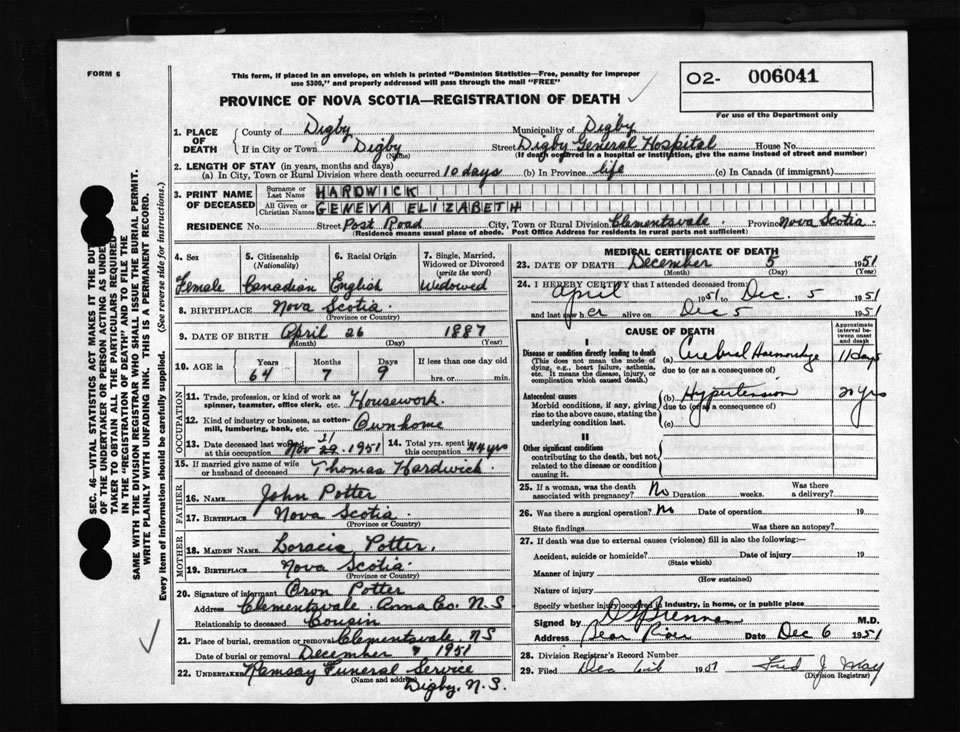 FORM 6
This form, if placed in an envelope, on which is printed "Dominion Statistics—Free, penalty for improper
use $300," and properly addressed will pass through the mail "FREE"
02- 006041
For use of the Department only
PROVINCE OF NOVA SCOTIA—REGISTRATION OF DEATH
SEC. 46—VITAL STATISTICS ACT MAKES IT THE DUTY
OF THE UNDERTAKER OR PERSON ACTING AS UNDER
TAKER TO OBTAIN ALL THE PARTICULARS REQUIRED
IN THE "REGISTRATION OF DEATH" AND TO FILE THE
SAME WITH THE DIVISION REGISTRAR WHO SHALL ISSUE THE BURIAL PERMIT.
WRITE PLAINLY WITH UNFADING INK. THIS IS A PERMANENT RECORD.
Every item of information should be carefully supplied. (See reverse side for instructions.)
1. PLACE OF DEATH County of Digby Municipality of Digby
If in City or Town Digby (Name) Street Digby General Hospital House No.
(If death occurred in a hospital or institution, give the name instead of street and number)
2. LENGTH OF STAY (in years, months and days)
(a) In City, Town or Rural Division where death occurred 10 days (b) In Province life (c) In Canada (if immigrant)
3. PRINT NAME OF DECEASED Surname or Last Name HARDWICK
All Given or Christian Names GENEVA ELIZABETH
RESIDENCE No. Street Post Road City, Town or Rural Division Clementsvale Province Nova Scotia
(Residence means usual place of abode. Post Office Address for residents in rural parts not sufficient)
4. Sex 5. Citizenship (Nationality) 6. Racial Origin 7. Single, Married, Widowed or Divorced (write the word)
Female Canadian English Widowed
8. BIRTHPLACE Nova Scotia
(Province or Country)
9. DATE OF BIRTH April 26 1887
(Month) (Day) (Year)
10. AGE in Years Months Days If less than one day old
64 7 9 hrs. or min.
OCCUPATION
11. Trade, profession, or kind of work as spinner, teamster, office clerk, etc. Housework.
12. Kind of industry or business, as cotton-mill, lumbering, bank, etc. Own home
13. Date deceased last worked at this occupation Nov 1951 14. Total yrs. spent in this occupation 44 yrs
15. If married give name of wife or husband of deceased Thomas Hardwick.
FATHER
16. NAME John Potter
17. BIRTHPLACE Nova Scotia.
(Province or Country)
MOTHER
18. MAIDEN NAME Potter.
19. BIRTHPLACE Nova Scotia.
(Province or Country)
20. Signature of informant Oron Potter
Address Clementsvale. Anna Co. N.S
Relationship to deceased Cousin
21. Place of burial, cremation or removal Clementsvale, NS
Date of burial or removal December 7 1951
22. UNDERTAKER Ramsay Funeral Service
(Name and address)
Digby, N.S.
MEDICAL CERTIFICATE OF DEATH
23. DATE OF DEATH December 5 1951
(Month) (Day) (Year)
24. I HEREBY CERTIFY that I attended deceased from
April 1951 to Dec. 5 1951
and last saw her alive on Dec 5 1951
CAUSE OF DEATH
Approximate interval between onset and death
I
Disease or condition directly leading to death
(This does not mean the mode of dying, e.g., heart failure, asthenia, etc. It means the disease, injury, or complication which caused death.)
(a) Cerebral Haemorrhage 11 days
due to (or as a consequence of)
Antecedent causes
Morbid conditions, if any, giving rise to the above cause, stating the underlying condition last.
(b) Hypertension yrs
due to (or as a consequence of)
(c)
II
Other significant conditions
contributing to the death, but not related to the disease or condition causing it.
25. If a woman, was the death associated with pregnancy? No Duration weeks. Was there a delivery?
26. Was there a surgical operation? No Date of operation 19
State findings Was there an autopsy?
27. If death was due to external causes (violence) fill in also the following:—
Accident, suicide or homicide? Date of injury 19
(State which)
Manner of injury
(How sustained)
Nature of injury
Specify whether injury occurred in industry, in home, or in public place
Signed by M.D.
Address Bear River Date Dec 6 1951
28. Division Registrar's Record Number
29. Filed Dec 1951 Fred J. May
(Division Registrar)